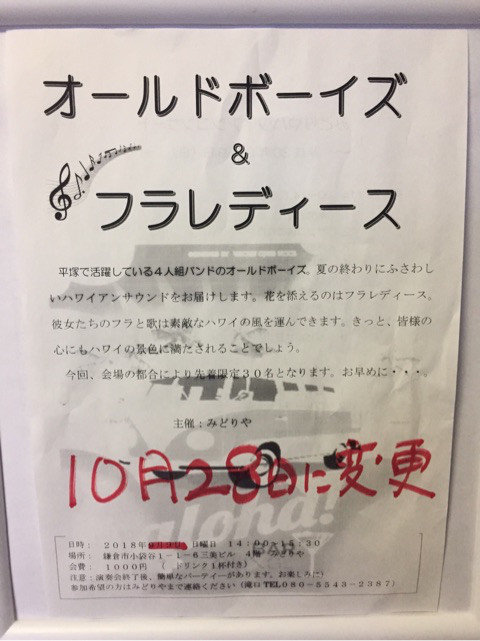 オールドボーイズ
&
フラレディース
平塚で活躍している4人組バンドのオールドボーイズ。夏の終わりにふさわし
いハワイアンサウンドをお届けします。花を添えるのはフラレディース。
彼女たちのフラと歌は素敵なハワイの風を運んできます。きっと、皆様の
心にもハワイの景色に満たされることでしょう。
今回、会場の都合により先着限定30名となります。お早めに・・・。
主催:みどりや
10月28日に変更
aloha!
日時: 2018年 日曜日 14:00~15:30
場所: 鎌倉市小袋谷1-1-6三葉ビル 4階 みどりや
会費: 1000円 ( ドリンク1杯付き)
注意:演奏会終了後、簡単なパーティーがあります。お楽しみに!
参加希望の方はみどりやまで連絡ください(滝口TEL080-5543-2387)